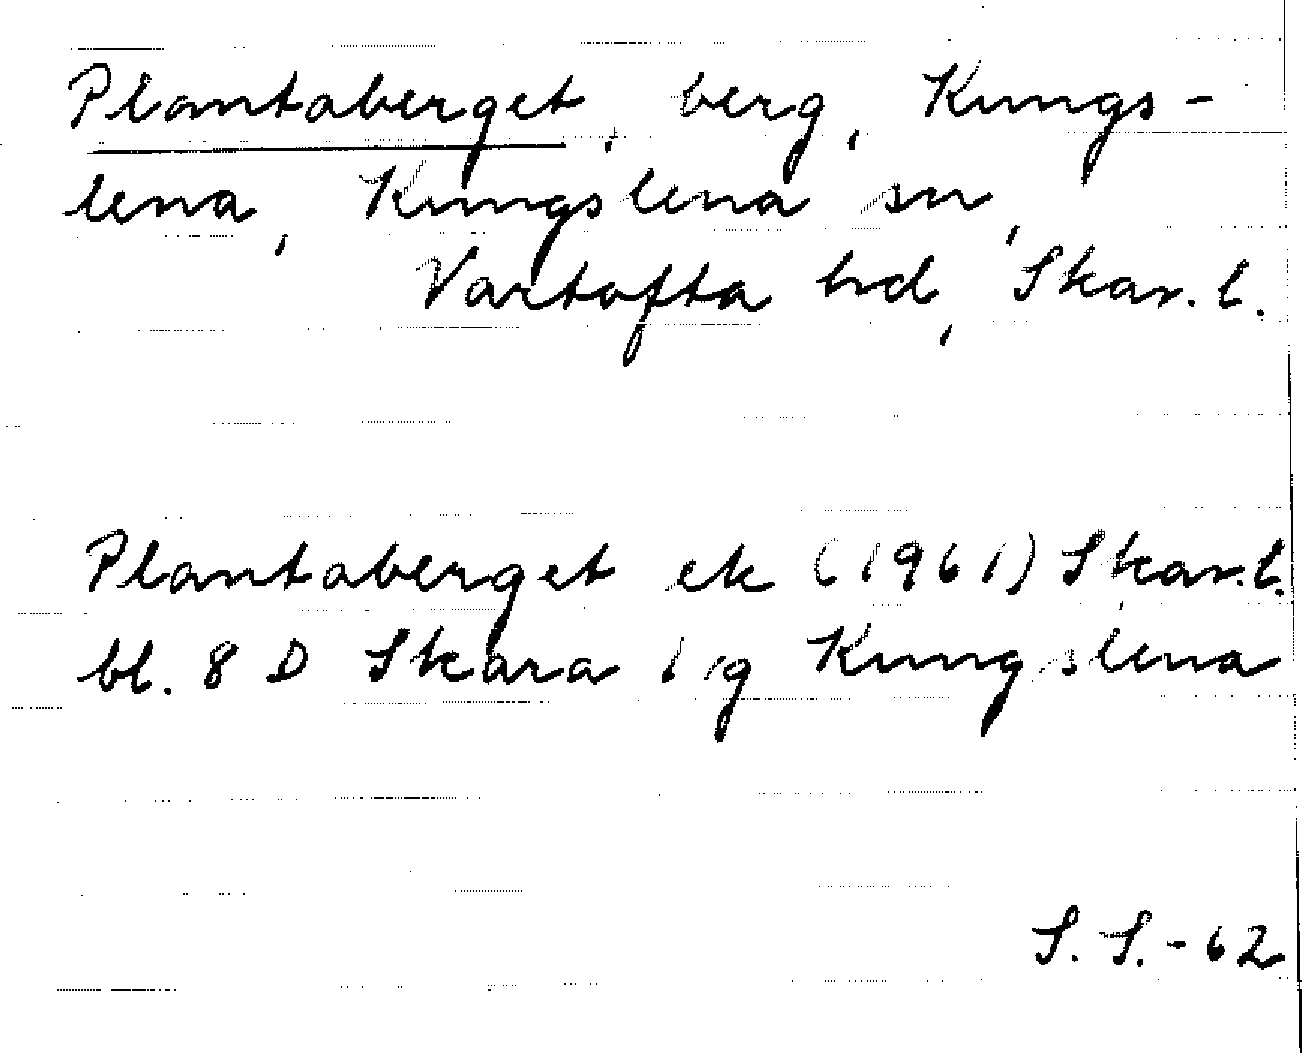 Plantaberget, berg, Kungs-
lena, Kungslena sn,
Vartofta hd, Skar. l.
Plantaberget ek (1961) Skar. l.
bl. 8 D Skara i g Kungslena
S. S. - 62